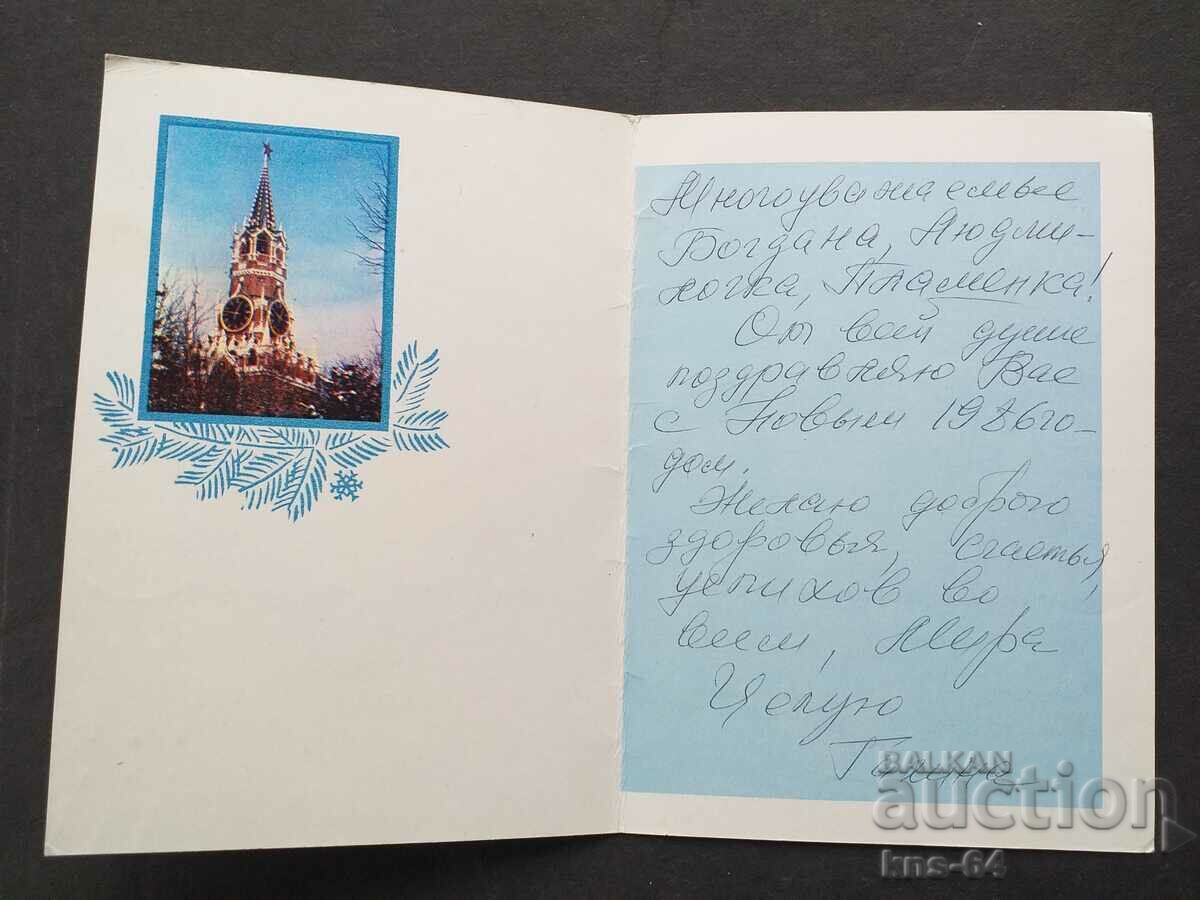 Многоуважаемые
Богдана, Людми-
лочка, Пламенка!
От всей души
поздравляю Вас
с Новым 1986 го-
дом.
Желаю доброго
здоровья, счастья,
успехов во
всем, Мира
Целую
BALKAN
auction
kns-64